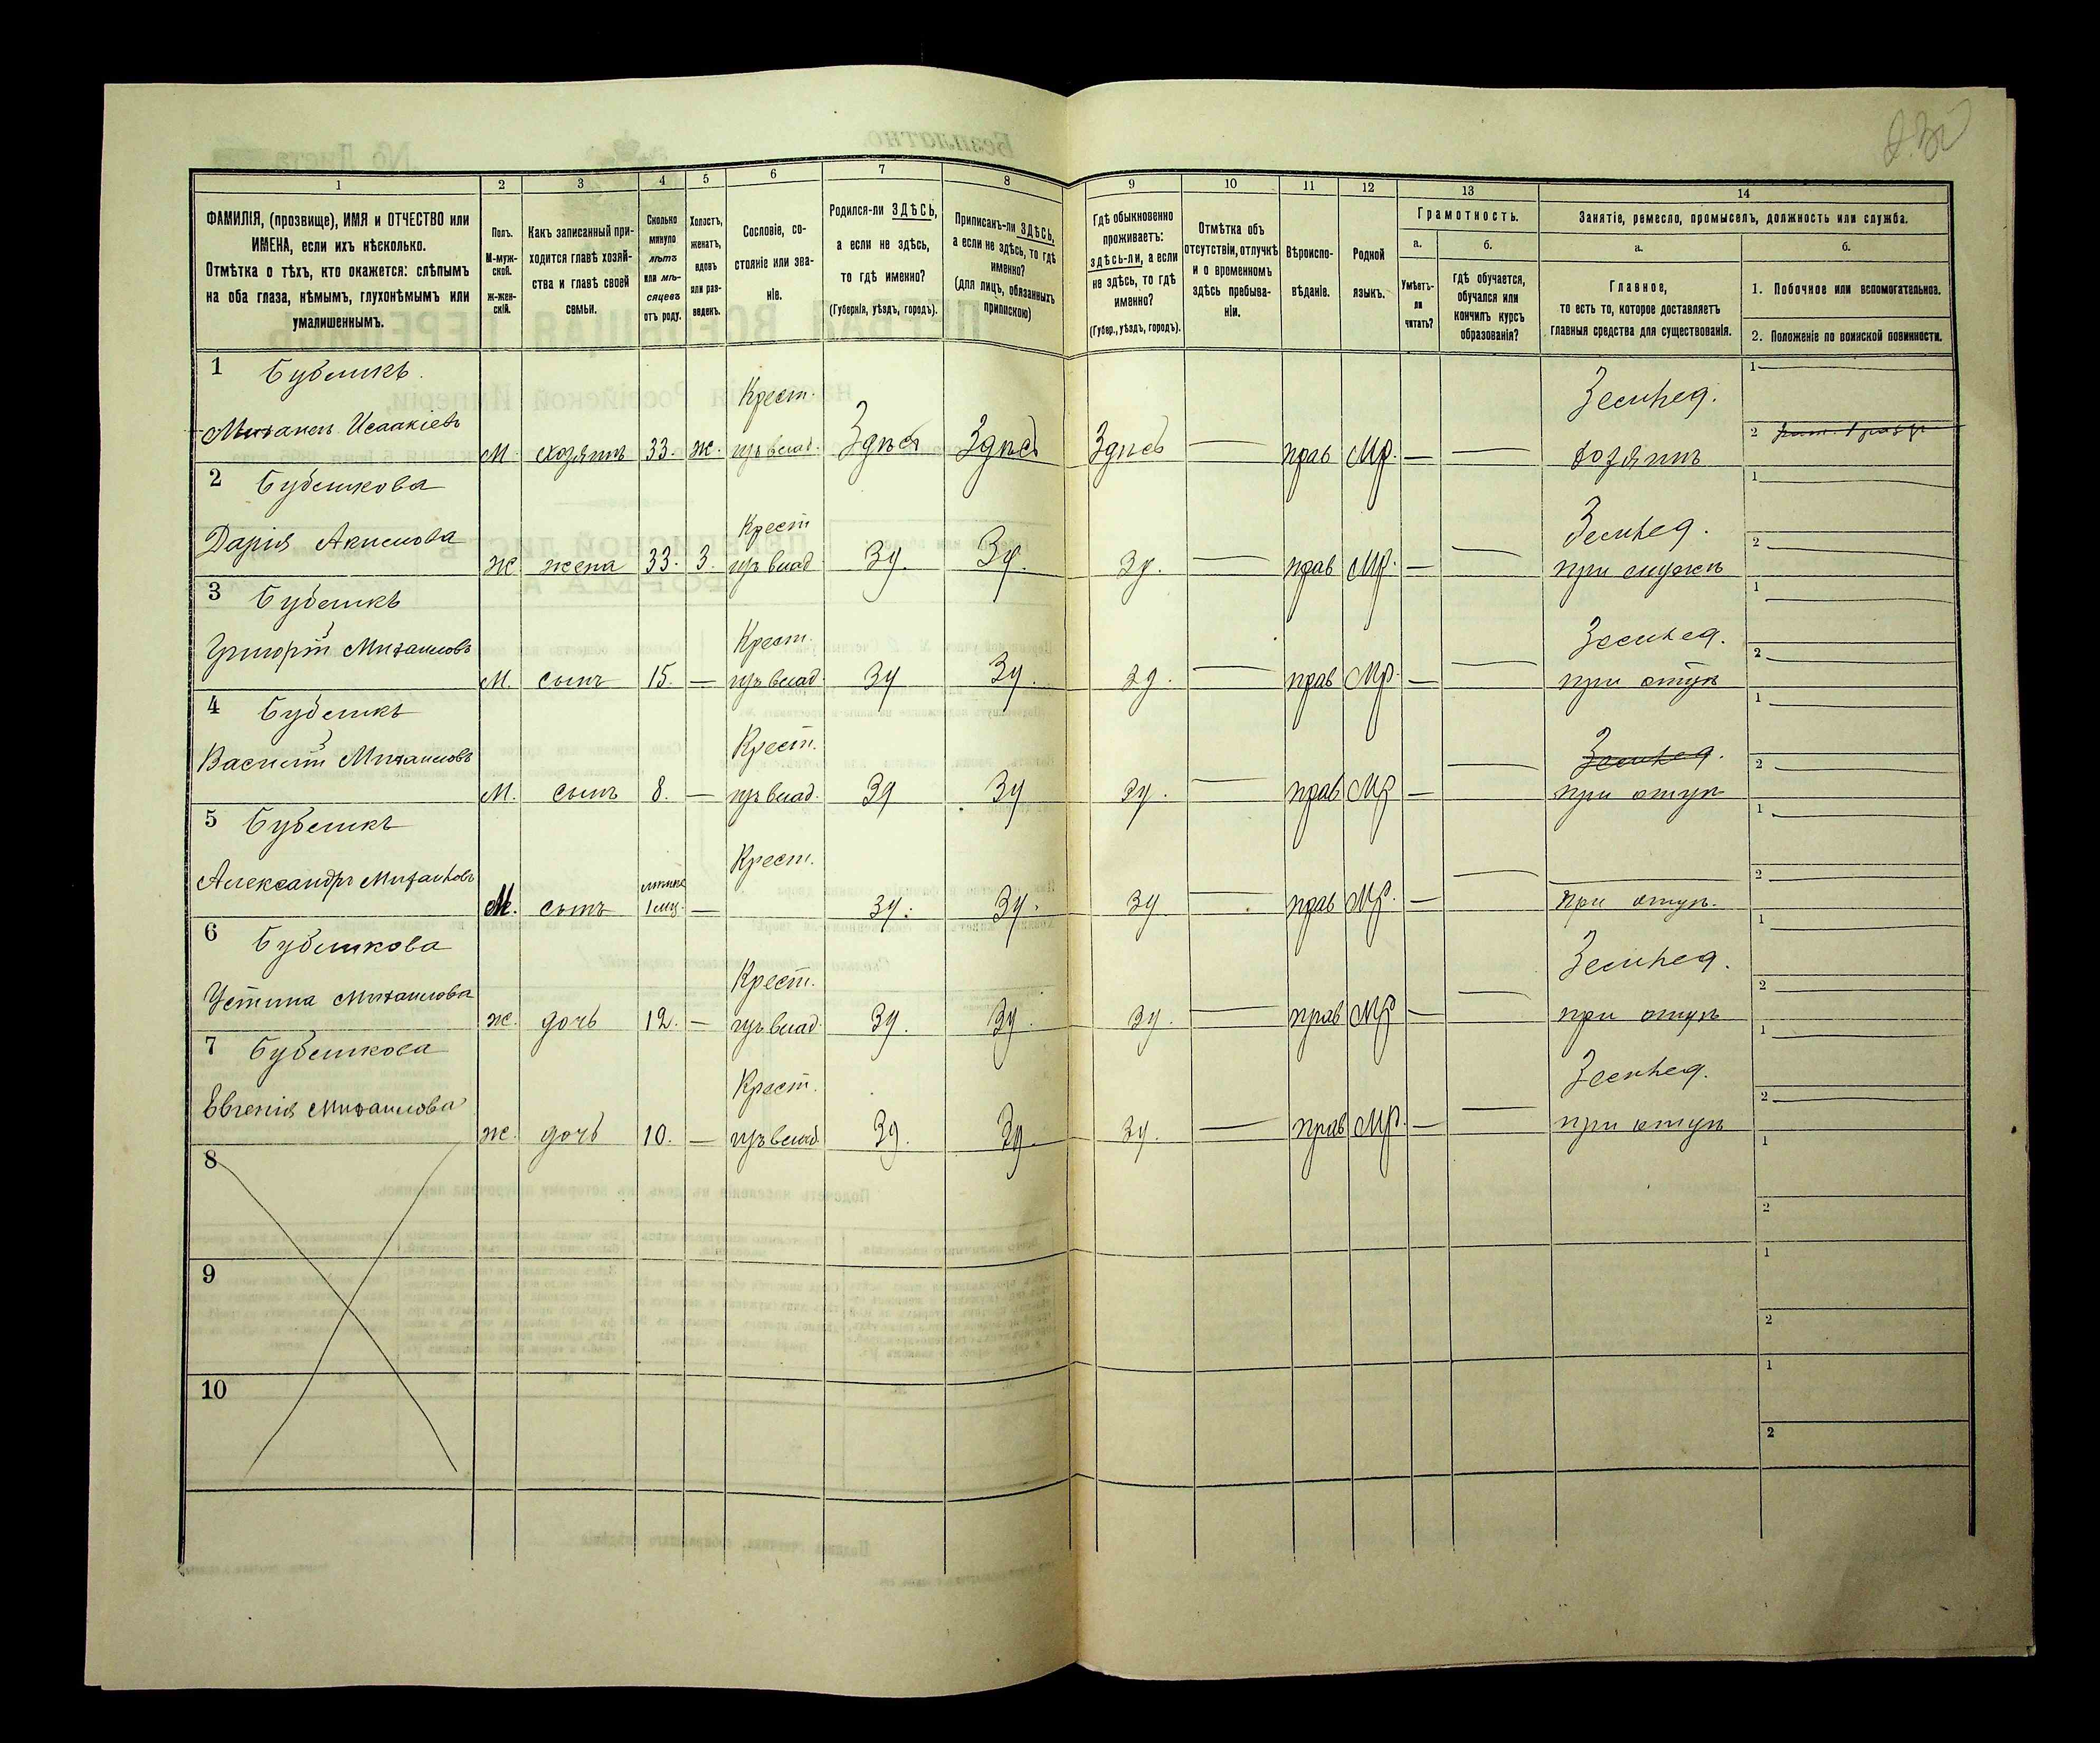 1 2 3 4 5 6 7 8 9 10 11 12 13 14
ФАМИЛІЯ, (прозвище), ИМЯ и ОТЧЕСТВО или
ИМЕНА, если ихъ нѣсколько.
Отмѣтка о тѣхъ, кто окажется: слѣпымъ
на оба глаза, нѣмымъ, глухонѣмымъ или
умалишеннымъ.
Полъ.
М-муж-
ской.
ж-жен-
скій.
Какъ записанный при-
ходится главѣ хозяй-
ства и главѣ своей
семьи.
Сколько
минуло
лѣтъ
или мѣ-
сяцевъ
отъ роду.
Холостъ,
женатъ,
вдовъ
или раз-
веденъ.
Сословіе, со-
стояніе или зва-
ніе.
Родился-ли ЗДѢСЬ,
а если не здѣсь,
то гдѣ именно?
(Губернія, уѣздъ, городъ).
Приписанъ-ли ЗДѢСЬ,
а если не здѣсь, то гдѣ
именно?
(для лицъ, обязанныхъ
припискою)
Гдѣ обыкновенно
проживаетъ:
здѣсь-ли, а если
не здѣсь, то гдѣ
именно?
(Губер., уѣздъ, городъ).
Отмѣтка объ
отсутствіи, отлучкѣ
и о временномъ
здѣсь пребыва-
ніи.
Вѣроиспо-
вѣданіе.
Родной
языкъ.
Грамотность.
а.
Умѣетъ-
ли
читать?
б.
гдѣ обучается,
обучался или
кончилъ курсъ
образованія?
Занятіе, ремесло, промыселъ, должность или служба.
а.
Главное,
то есть то, которое доставляетъ
главныя средства для существованія.
б.
1. Побочное или вспомогательное.
2. Положеніе по воинской повинности.
1 Бубликъ Крест. Землед. 1
Михаилъ Исаакіевъ М. хозяинъ 33. ж. Здѣсь Здѣсь Здѣсь — прав Мр. — — хозяинъ 2
2 Бубликова Крест Землед. 1
Дарія Акимова ж. жена 33. З. Зд. Зд. Зд. — прав Мр. — — при мужѣ 2
3 Бубликъ Крест. Землед. 1
Григорій Михаиловъ М. сынъ 15. — Зд Зд. Зд. — прав Мр. — — при отцѣ 2
4 Бубликъ Крест. Землед. 1
Василій Михаиловъ М. сынъ 8. — Зд Зд Зд. — прав Мр — — при отцѣ 2
5 Бубликъ Крест. 1
Александръ Михаиловъ М. сынъ 1 мц. — Зд. Зд. Зд — прав Мр. — — при отцѣ. 2
6 Бубликова Крест. Землед. 1
Устина Михаилова ж. дочь 12. — Зд. Зд. Зд. — прав Мр — — при отцѣ 2
7 Бубликова Крест. Землед. 1
Евгенія Михаилова ж. дочь 10. — Зд. Зд. Зд. — прав Мр. — — при отцѣ 2
8 1
2
9 1
2
10 1
2